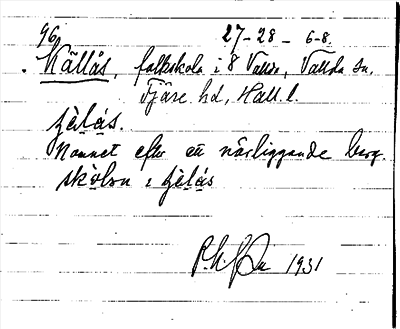 96. 27-28 - 6-8.
Källås, folkskola i 8 Vallda, Vallda sn.
Fjäre hd, Hall. l.
Namnet efter ett närliggande berg.
skolan i
1931